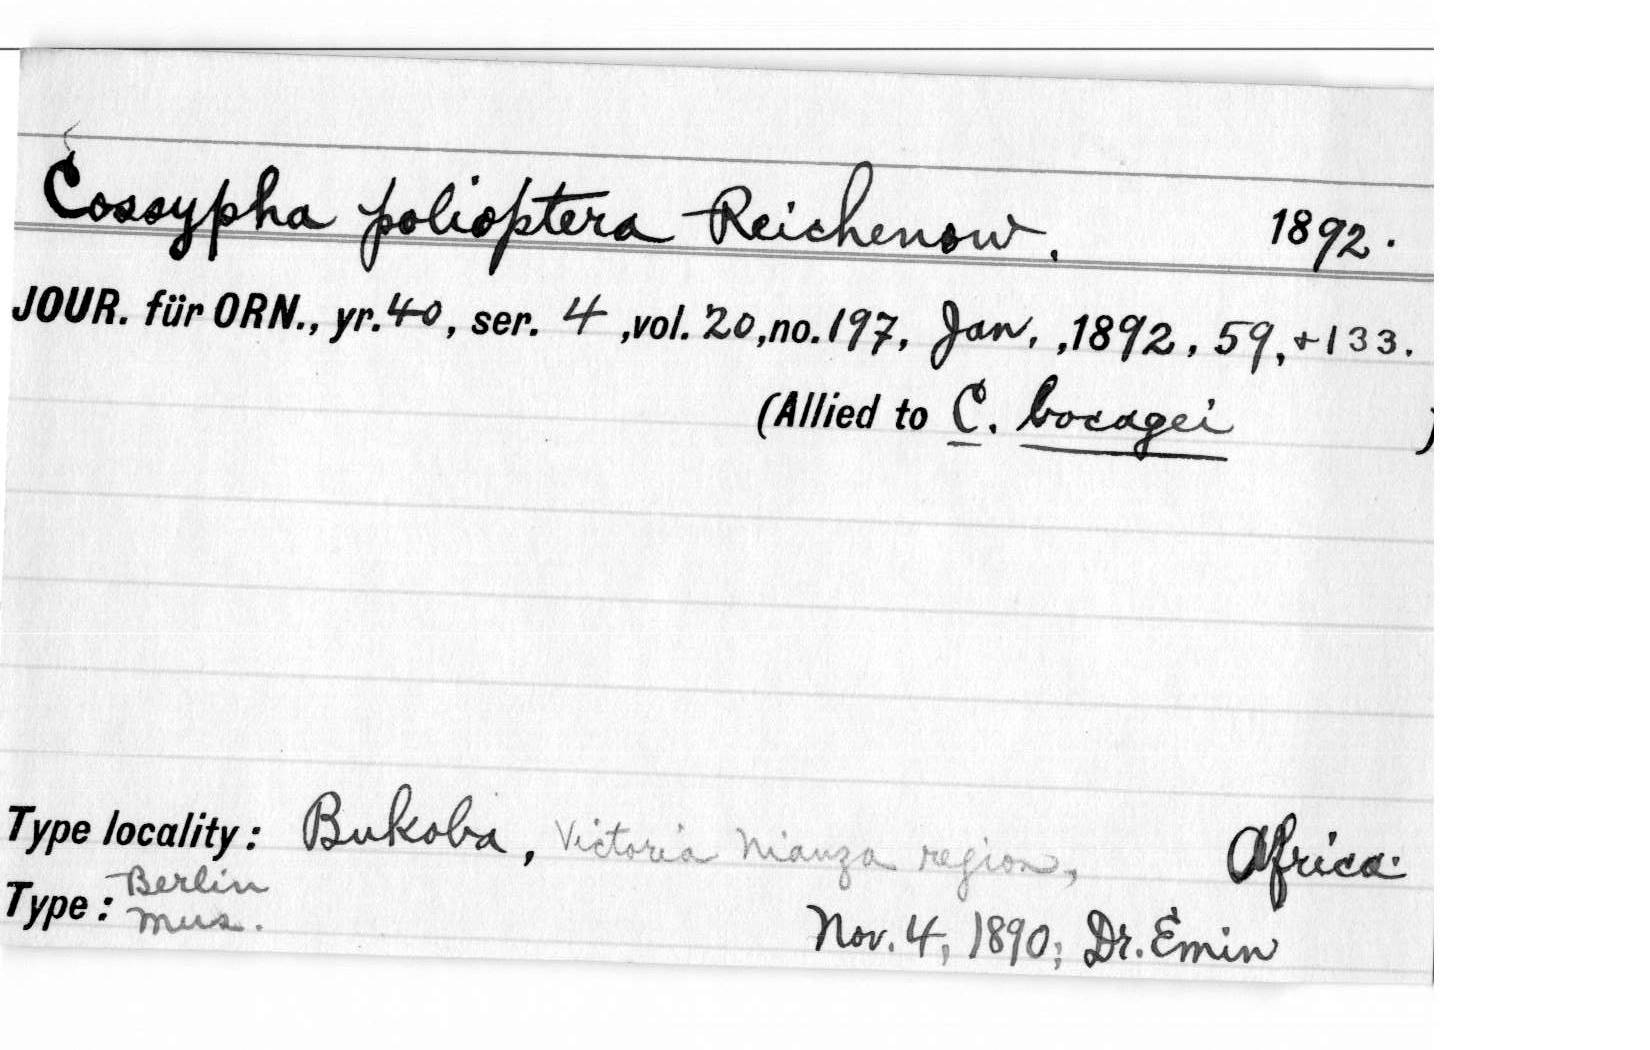 Cossypha polioptera Reichenow. 1892.
JOUR. für ORN., yr. 40, ser. 4, vol. 20, no. 197, Jan., 1892, 59, + 133.
(Allied to C. bocagei )
Type locality: Bukoba, Victoria Nianza region, Africa.
Type: Berlin Mus.
Nov. 4, 1890; Dr. Emin